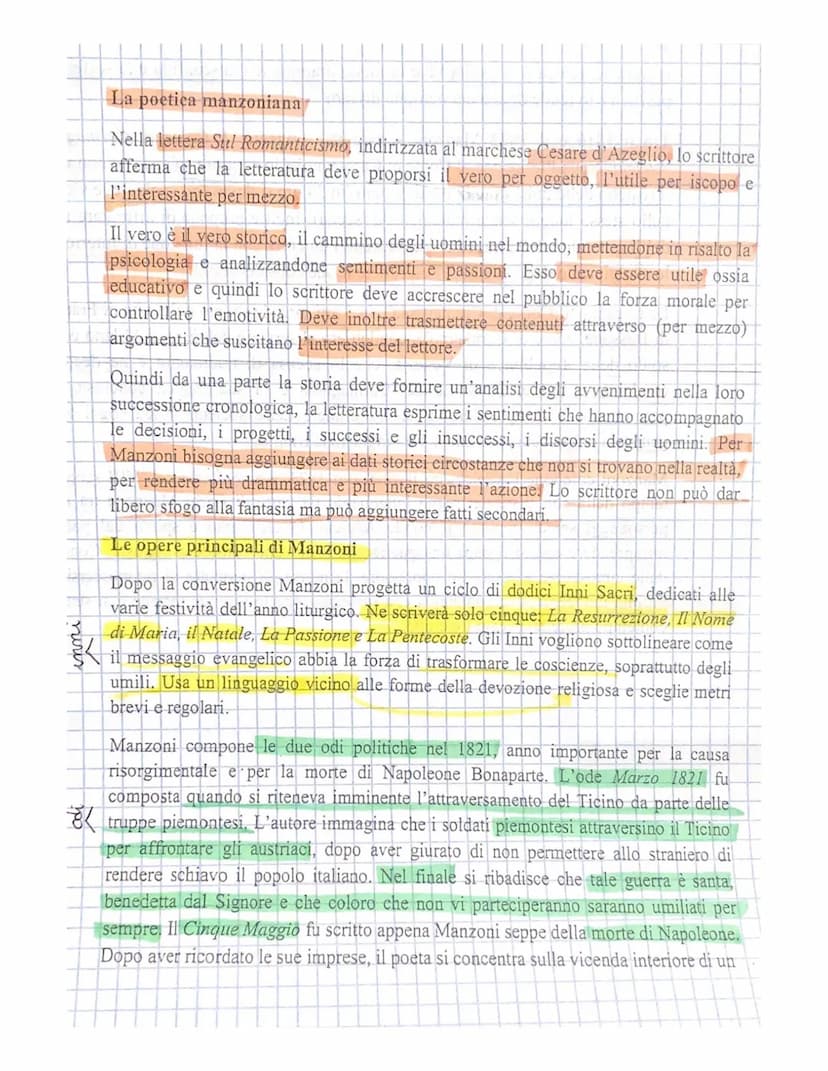 La poetica manzoniana
Nella lettera Sul Romanticismo, indirizzata al marchese Cesare d'Azeglio, lo scrittore
afferma che la letteratura deve proporsi il vero per oggetto, l'utile per iscopo e
l'interessante per mezzo.
Il vero è il vero storico, il cammino degli uomini nel mondo, mettendone in risalto la
psicologia e analizzandone sentimenti e passioni. Esso deve essere utile ossia
educativo e quindi lo scrittore deve accrescere nel pubblico la forza morale per
controllare l'emotività. Deve inoltre trasmettere contenuti attraverso (per mezzo)
argomenti che suscitano l'interesse del lettore.
Quindi da una parte la storia deve fornire un'analisi degli avvenimenti nella loro
successione cronologica, la letteratura esprime i sentimenti che hanno accompagnato
le decisioni, i progetti, i successi e gli insuccessi, i discorsi degli uomini. Per
Manzoni bisogna aggiungere ai dati storici circostanze che non si trovano nella realtà,
per rendere più drammatica e più interessante l'azione. Lo scrittore non può dar
libero sfogo alla fantasia ma può aggiungere fatti secondari.
Le opere principali di Manzoni
Dopo la conversione Manzoni progetta un ciclo di dodici Inni Sacri, dedicati alle
varie festività dell'anno liturgico. Ne scriverà solo cinque: La Resurrezione, Il Nome
di Maria, il Natale, La Passione e La Pentecoste. Gli Inni vogliono sottolineare come
il messaggio evangelico abbia la forza di trasformare le coscienze, soprattutto degli
umili. Usa un linguaggio vicino alle forme della devozione religiosa e sceglie metri
brevi e regolari.
inni
Manzoni compone le due odi politiche nel 1821, anno importante per la causa
risorgimentale e per la morte di Napoleone Bonaparte. L'ode Marzo 1821 fu
composta quando si riteneva imminente l'attraversamento del Ticino da parte delle
truppe piemontesi. L'autore immagina che i soldati piemontesi attraversino il Ticino
per affrontare gli austriaci, dopo aver giurato di non permettere allo straniero di
rendere schiavo il popolo italiano. Nel finale si ribadisce che tale guerra è santa,
benedetta dal Signore e che coloro che non vi parteciperanno saranno umiliati per
sempre. Il Cinque Maggio fu scritto appena Manzoni seppe della morte di Napoleone.
Dopo aver ricordato le sue imprese, il poeta si concentra sulla vicenda interiore di un
odi